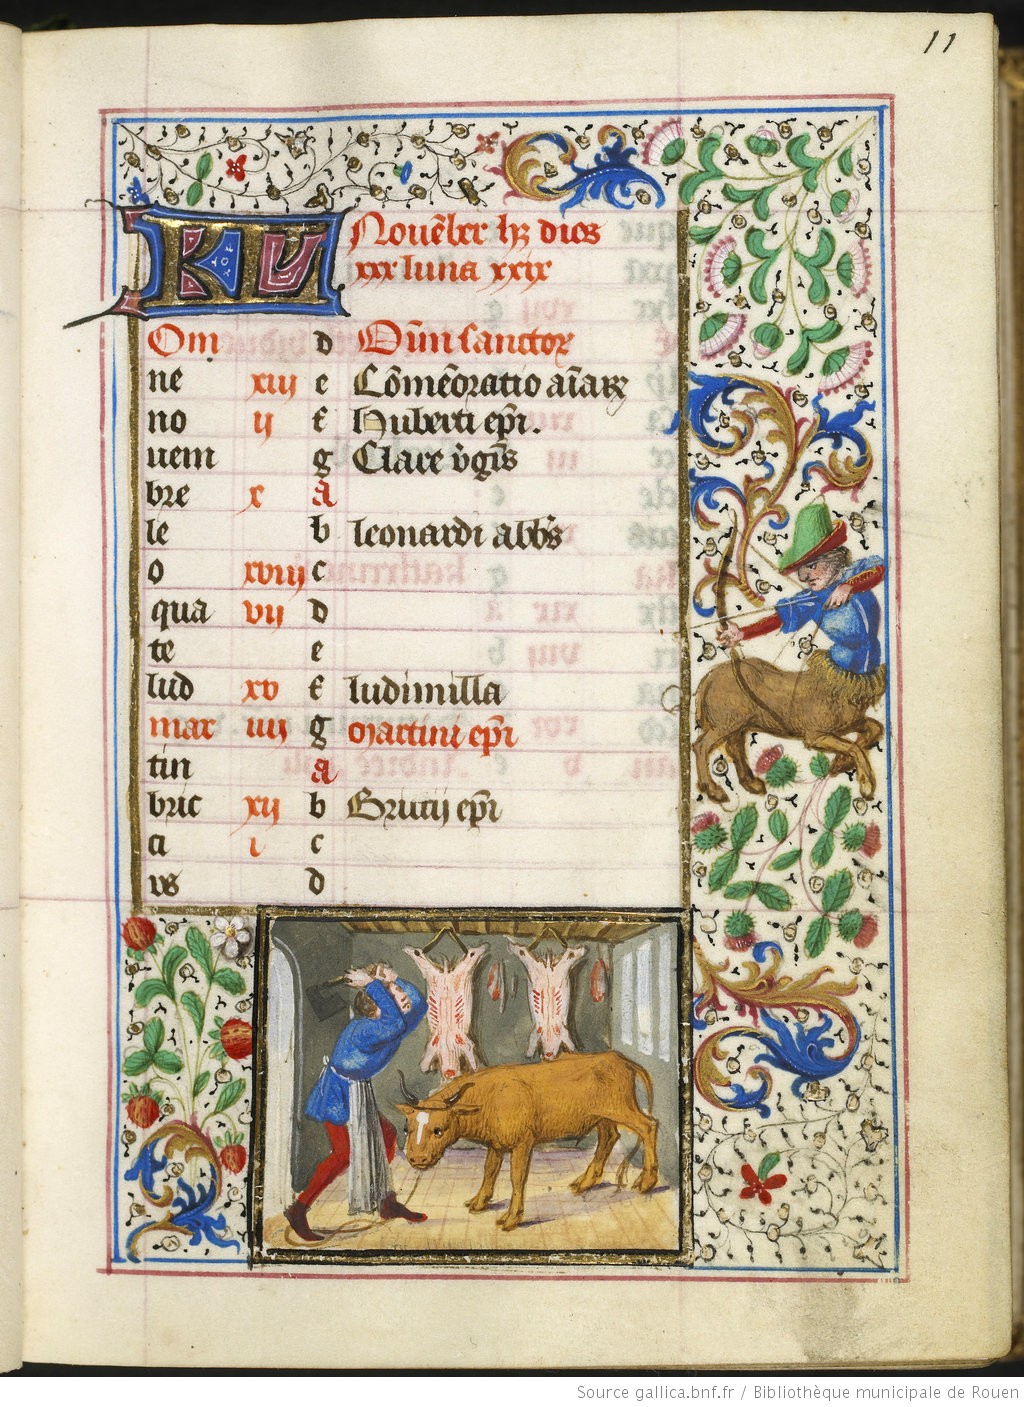 11
KL Nouẽber hȝ dies
xxx luna xxix
Om d Oĩm sanctoꝝ
ne xiii e Cõmẽoratio aĩaꝝ
no ij f Huberti ep̃i.
uem g Clare v̓gĩs
bre x A
le b leonardi abb̃s
o xviij c
qua vij d
te e
lud xv f ludimilla
mar iiij g Martini ep̃i
tin A
bric xij b Brictij ep̃i
ci i c
us d
Source gallica.bnf.fr / Bibliothèque municipale de Rouen